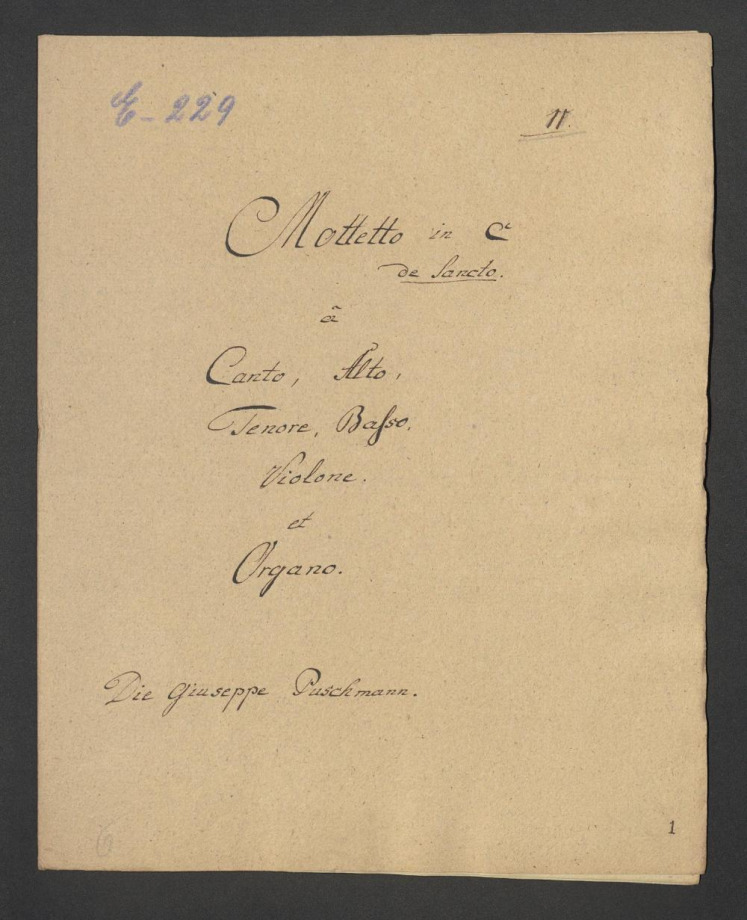 E-229
11.
Mottetto in C
de Sancto.
ã
Canto, Alto,
Tenore, Baſso.
Violone.
et
Organo.
Die Giuseppe Puschmann.
6
1